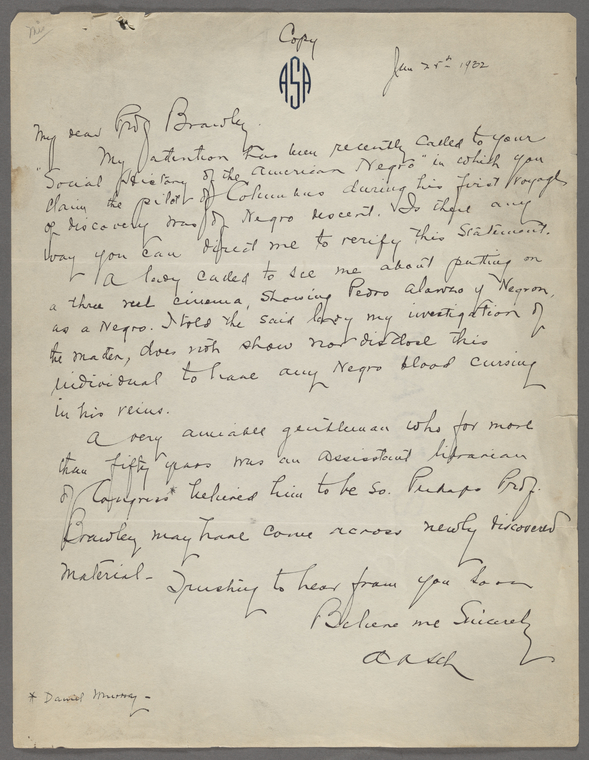 Copy
ASA
Jan 25th 1932
My dear Prof Brawley.
My attention has been recently called to your
"Social History of the American Negro" in which you
claim the pilot of Columbus during his first voyage
of discovery was of Negro descent. Is there any
way you can direct me to verify this statement.
A lady called to see me about putting on
a three reel cinema, showing Pedro Alonso y Negron,
as a Negro. I told the said lady my investigation of
the matter, does not show nor disclose this
individual to have any Negro blood cursing
in his veins.
A very amiable gentleman who for more
than fifty years was an assisstant librarian
of Congress* believed him to be so. Perhaps Prof.
Brawley may have come across newly discovered
material - Trusting to hear from you soon
Believe me Sincerely
AASch
* Daniel Murray -